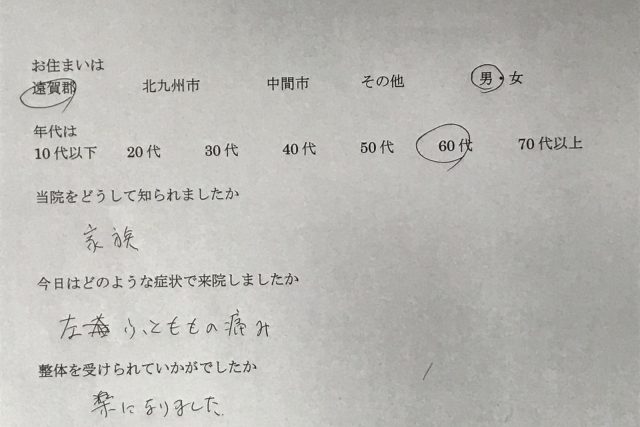 お住まいは
遠賀郡 北九州市 中間市 その他 男・女
年代は
10代以下 20代 30代 40代 50代 60代 70代以上
当院をどうして知られましたか
家族
今日はどのような症状で来院しましたか
左ふとももの痛み
整体を受けられていかがでしたか
楽になりました。